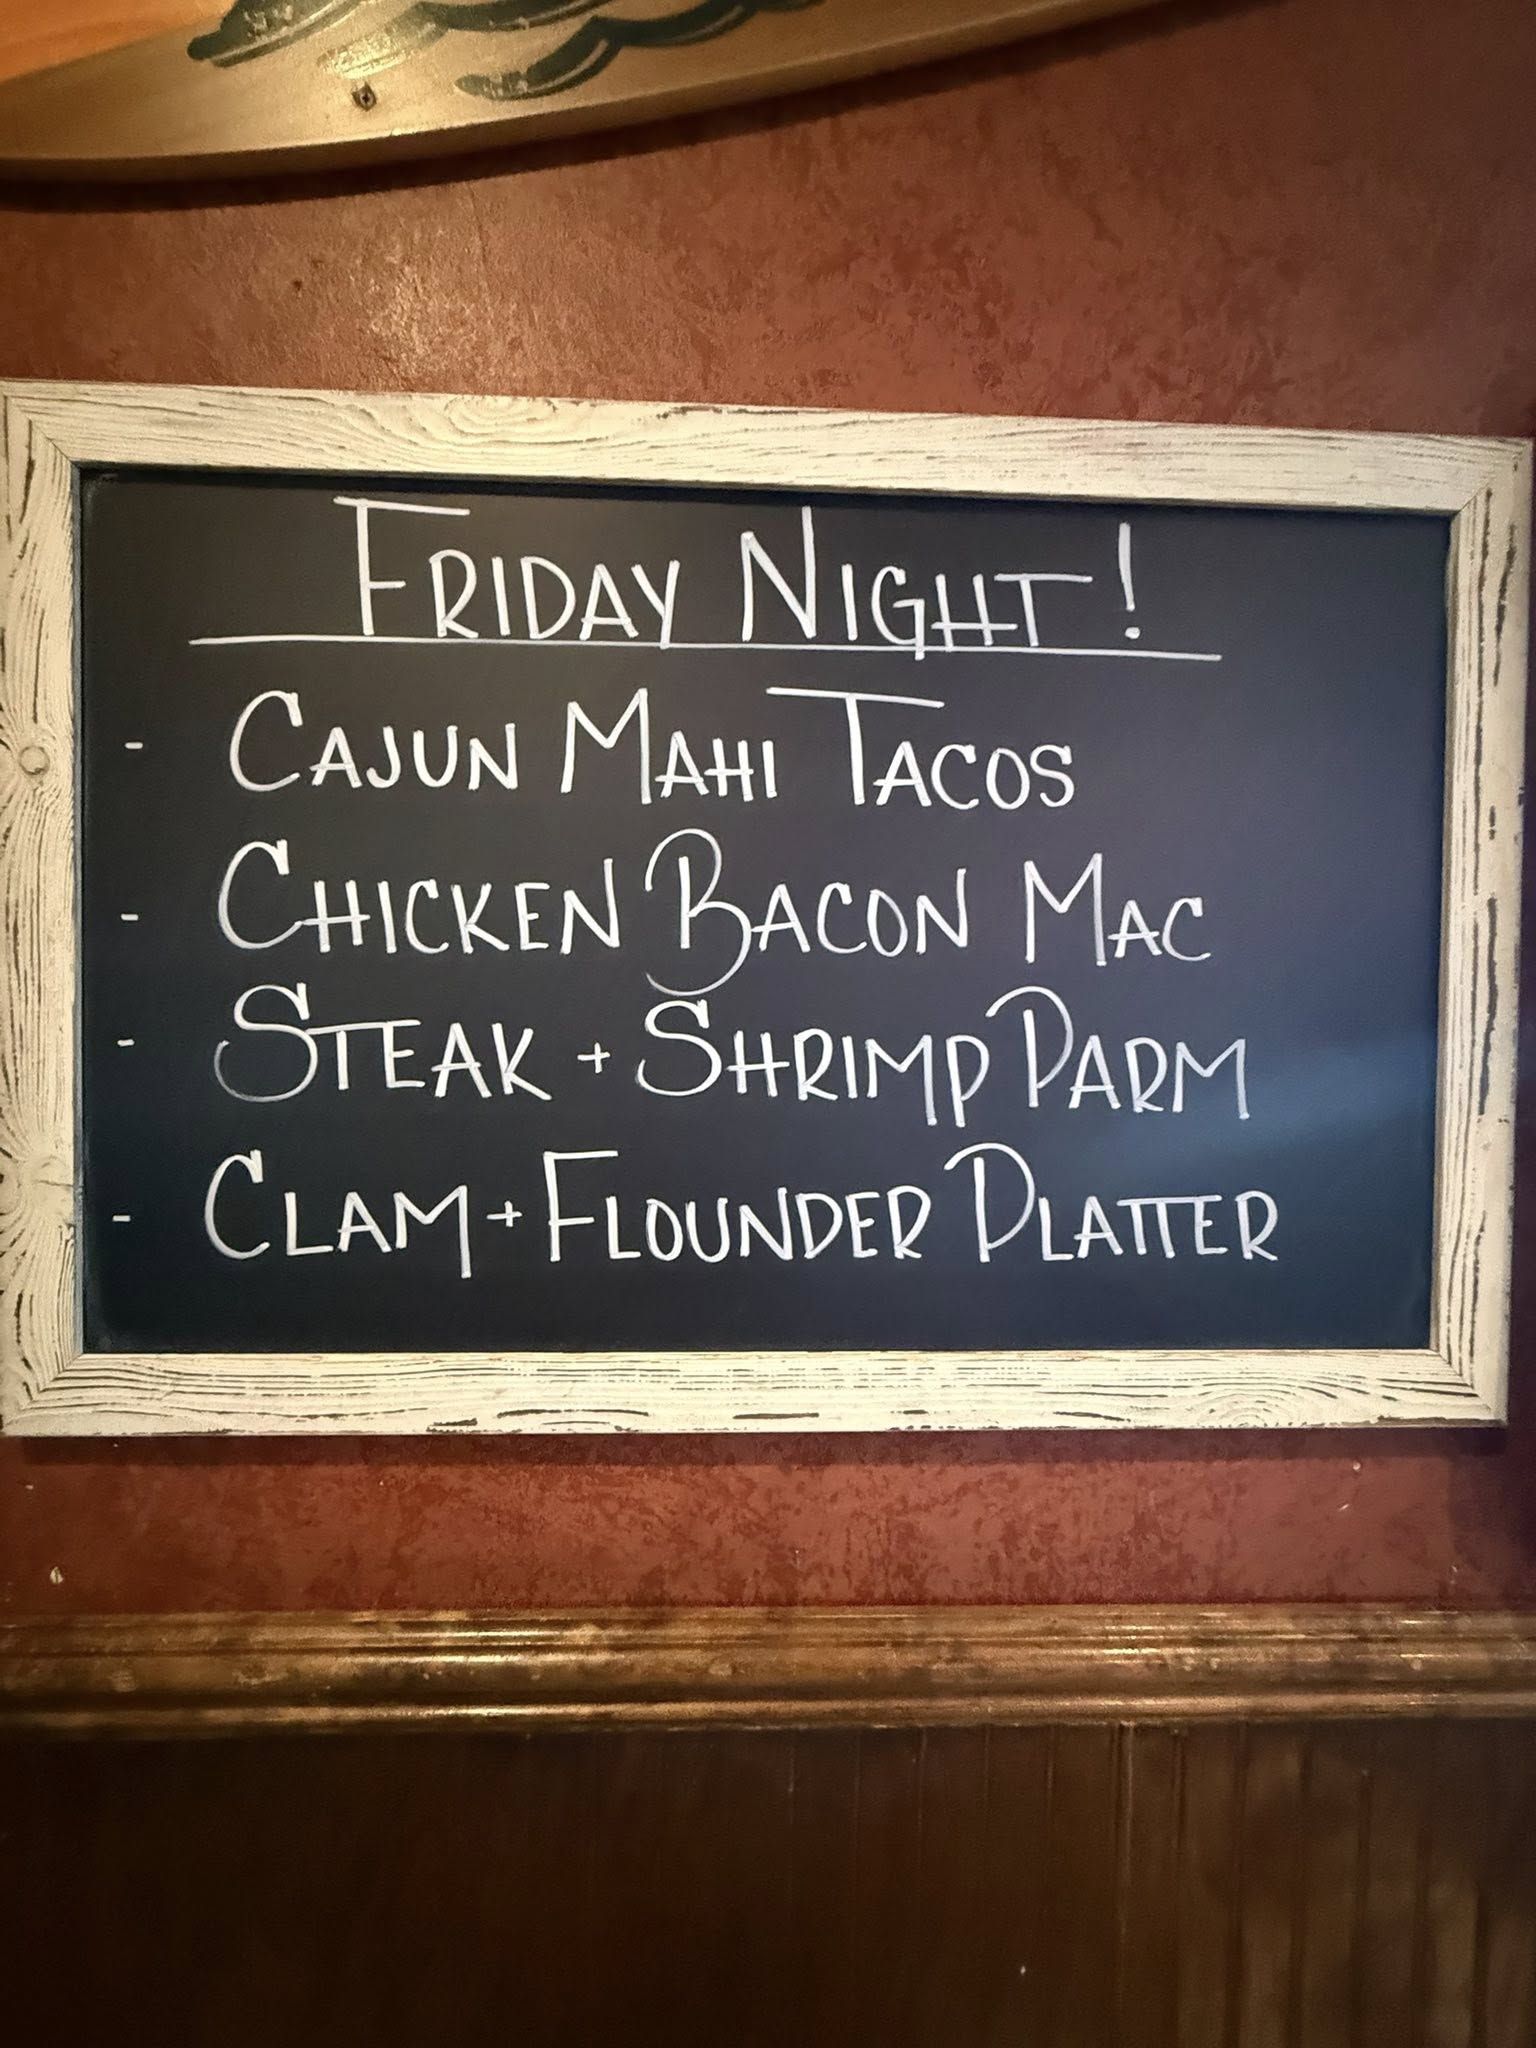 FRIDAY NIGHT!
- CAJUN MAHI TACOS
- CHICKEN BACON MAC
- STEAK + SHRIMP PARM
- CLAM + FLOUNDER PLATTER